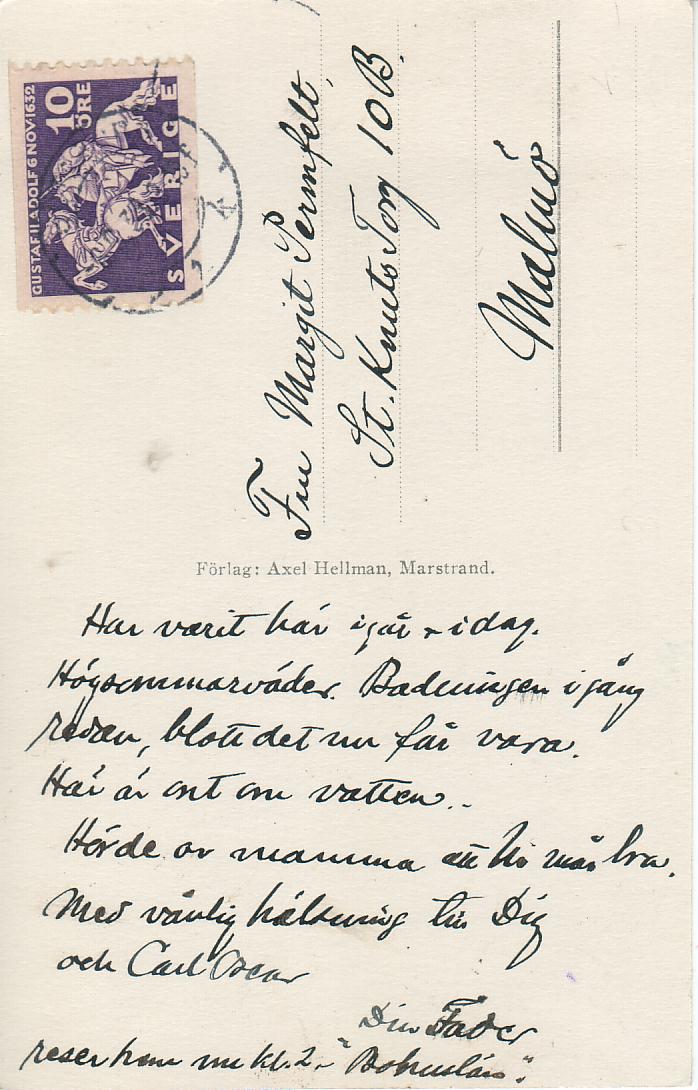 GUSTAF II ADOLF 6 NOV. 1632
10
ÖRE
SVERIGE
Fru Margit Permfelt,
St. Knuts Torg 10 B.
Malmö
Förlag: Axel Hellman, Marstrand.
Har varit här igår & idag.
Högsommarväder. Badningen igång
redan, blott det nu får vara.
Här är ont om vatten..
Hörde av mamma att Ni mår bra.
Med vänlig hälsning till Dig
och Carl Oscar
Din Fader
reser hem nu kl. 2 - "Bohuslän".